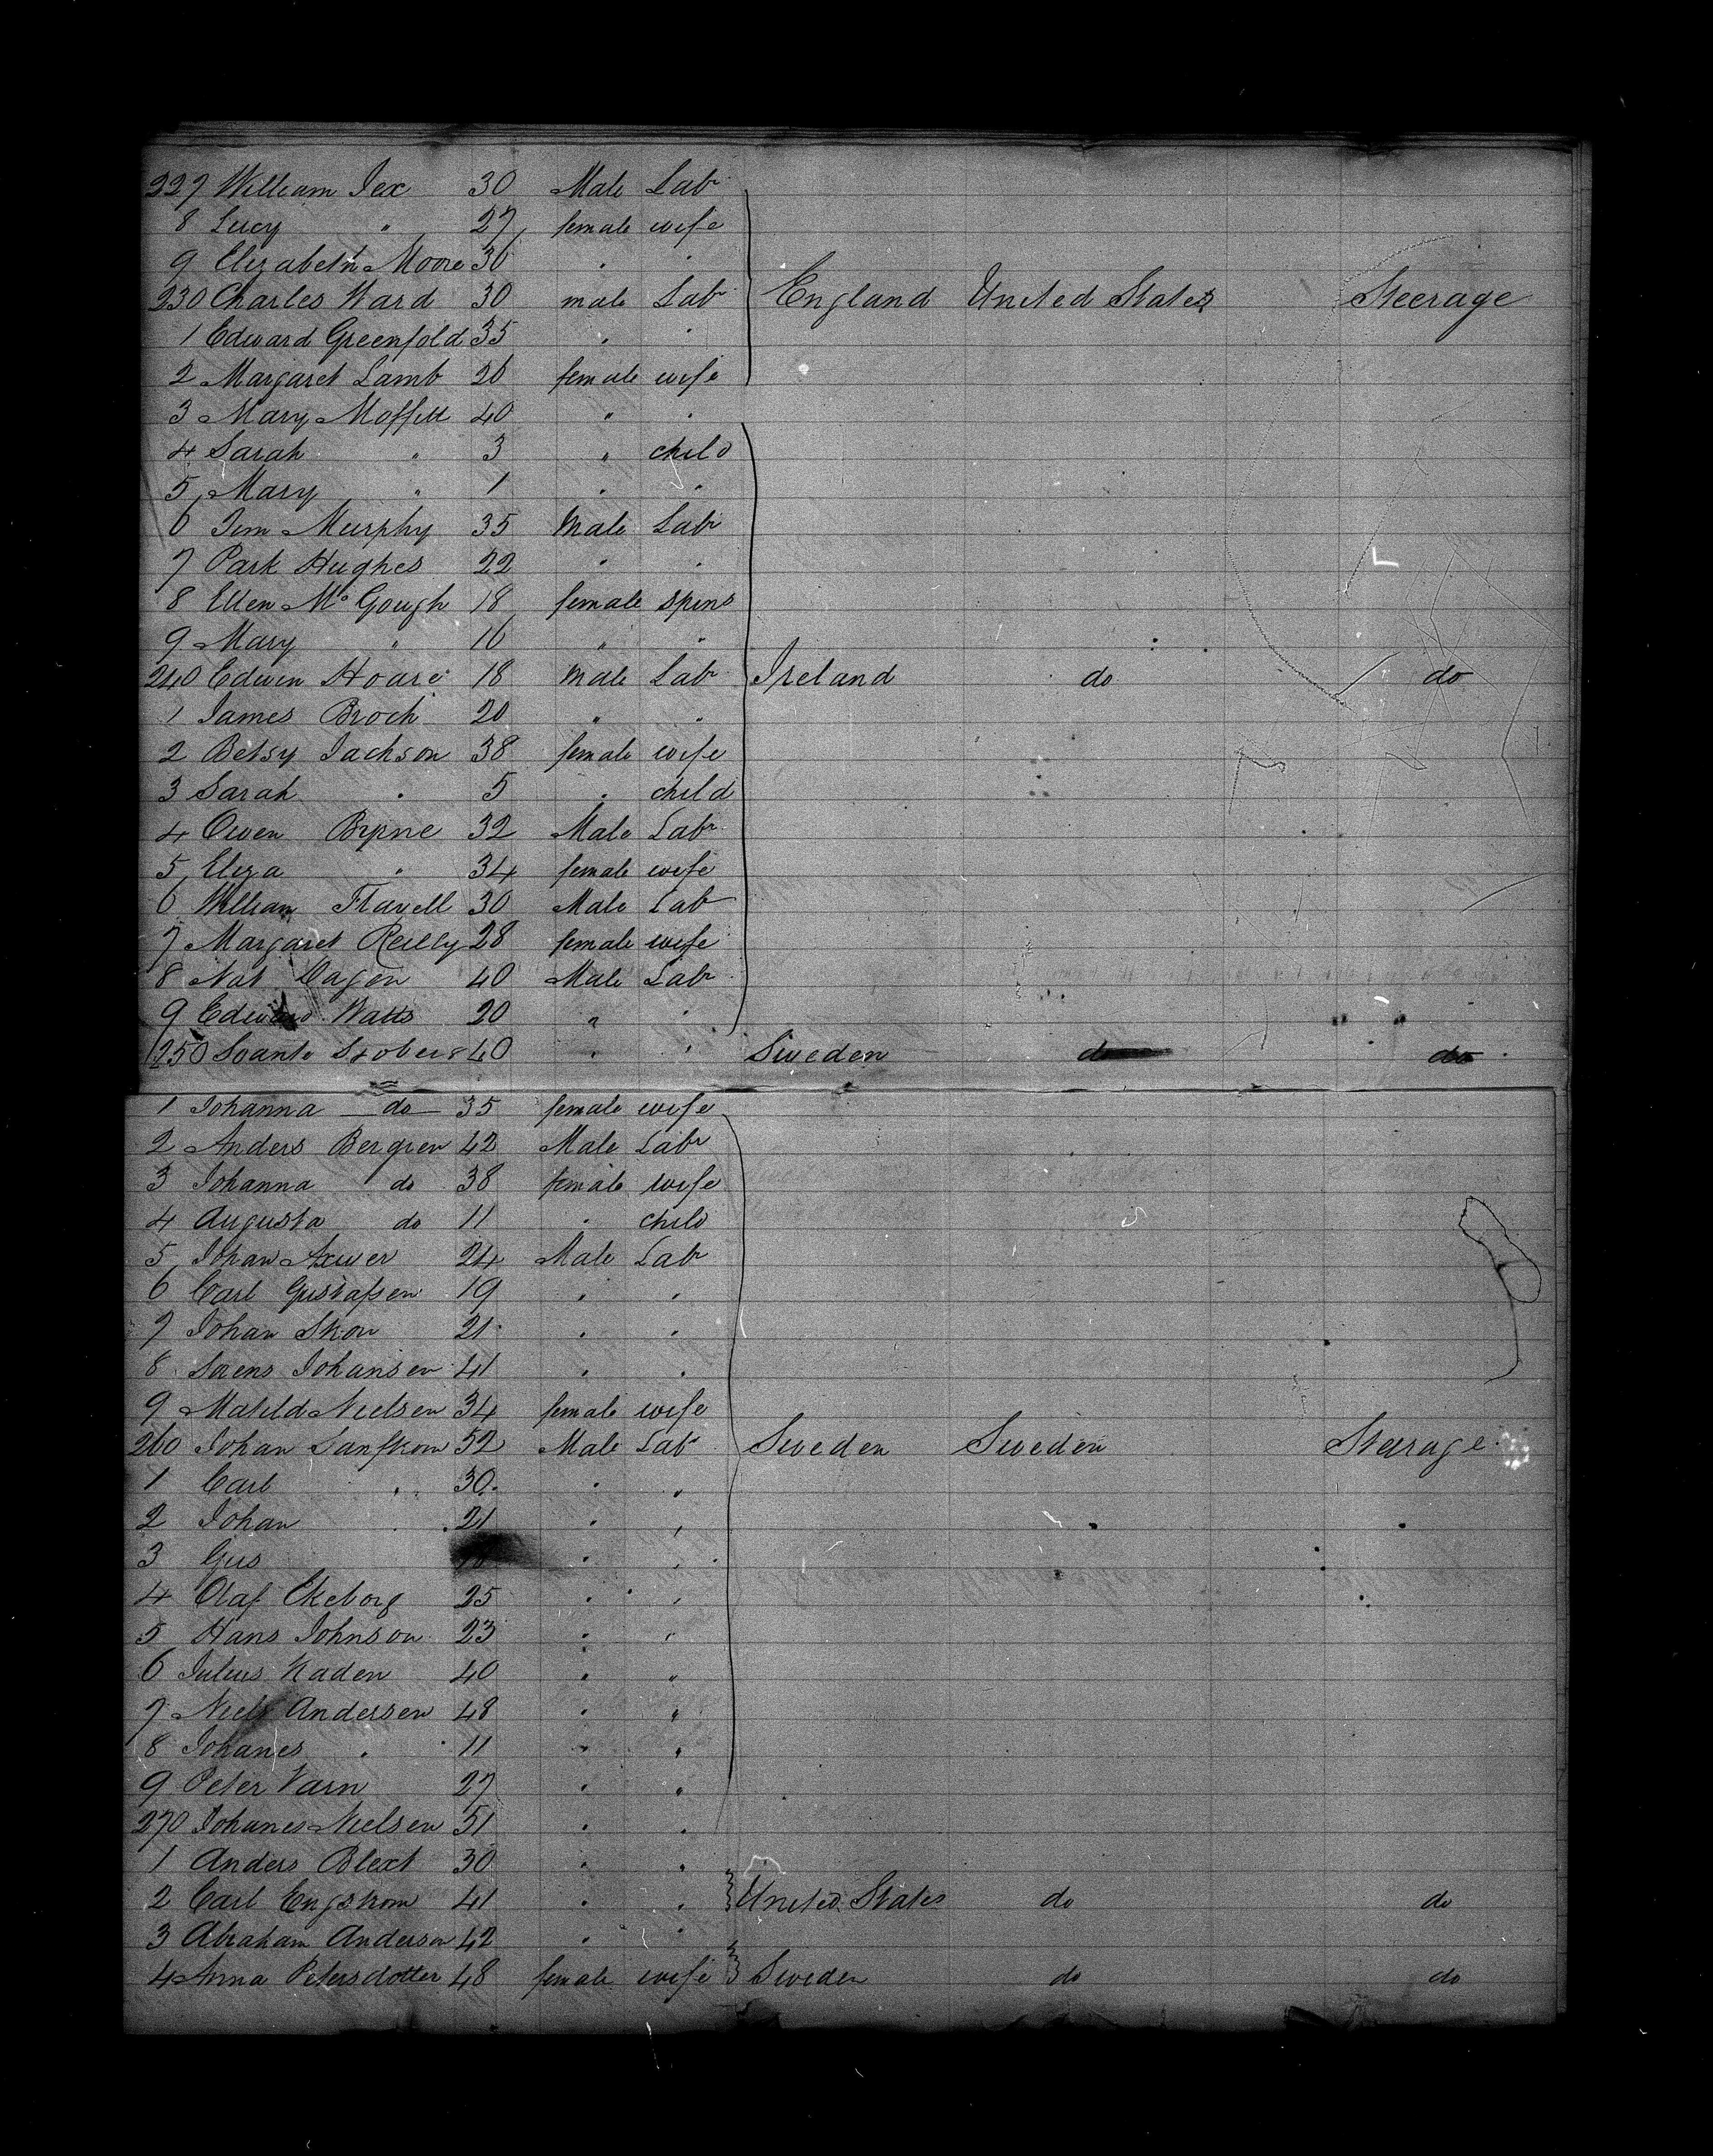 227 William Jex 30 Male Labr
8 Lucy " 27 female wife
9 Elizabeth Moore 36 " "
230 Charles Ward 30 male Labr England United States Steerage
1 Edward Greenfold 35 " "
2 Margaret Lamb 26 female wife
3 Mary Moffett 40 " "
4 Sarah " 3 " child
5 Mary " 1 " "
6 Jem Murphy 35 Male Labr
7 Park Hughes 22 " "
8 Ellen McGough 18 female spins
9 Mary " 16 " "
240 Edwin Hoare 18 male Labr Ireland do do
1 James Broch 20 " "
2 Betsy Jackson 38 female wife
3 Sarah " 5 " child
4 Owen Byrne 32 Male Labr
5 Eliza " 34 female wife
6 William Flavell 30 Male Labr
7 Margaret Reilly 28 female wife
8 Nat 40 Male Labr
9 Edward Watts 20 " "
250 40 " " Sweden do do
1 Johanna do 35 female wife
2 Anders Bergren 42 Male Labr
3 Johanna do 38 female wife
4 Augusta do 11 " child
5 Johan 24 Male Labr
6 Carl Gustafsen 19 " "
7 Johan Skow 21 " "
8 Sorens Johansen 41 " "
9 Matild Nielsen 34 female wife
260 Johan 52 Male Labr Sweden Sweden Steerage
1 Carl " 30 " "
2 Johan " 21 " "
3 Gus " "
4 Olaf Ekeborg 25 " "
5 Hans Johnson 23 " "
6 Julius Kaden 40 " "
7 Niels Andersen 48 " "
8 Johanes " 11 " "
9 Peter Varn 27 " "
270 Johanes Nielsen 51 " "
1 Anders Blext 30 " "
2 Carl Engstrom 41 " " United States do do
3 Abraham Anderson 42 " "
4 Anna Petersdotter 48 female wife Sweden do do